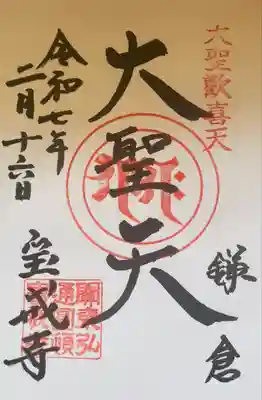 大聖歓喜天
鎌倉
大聖天
令和七年
二月十六日
宝戒寺